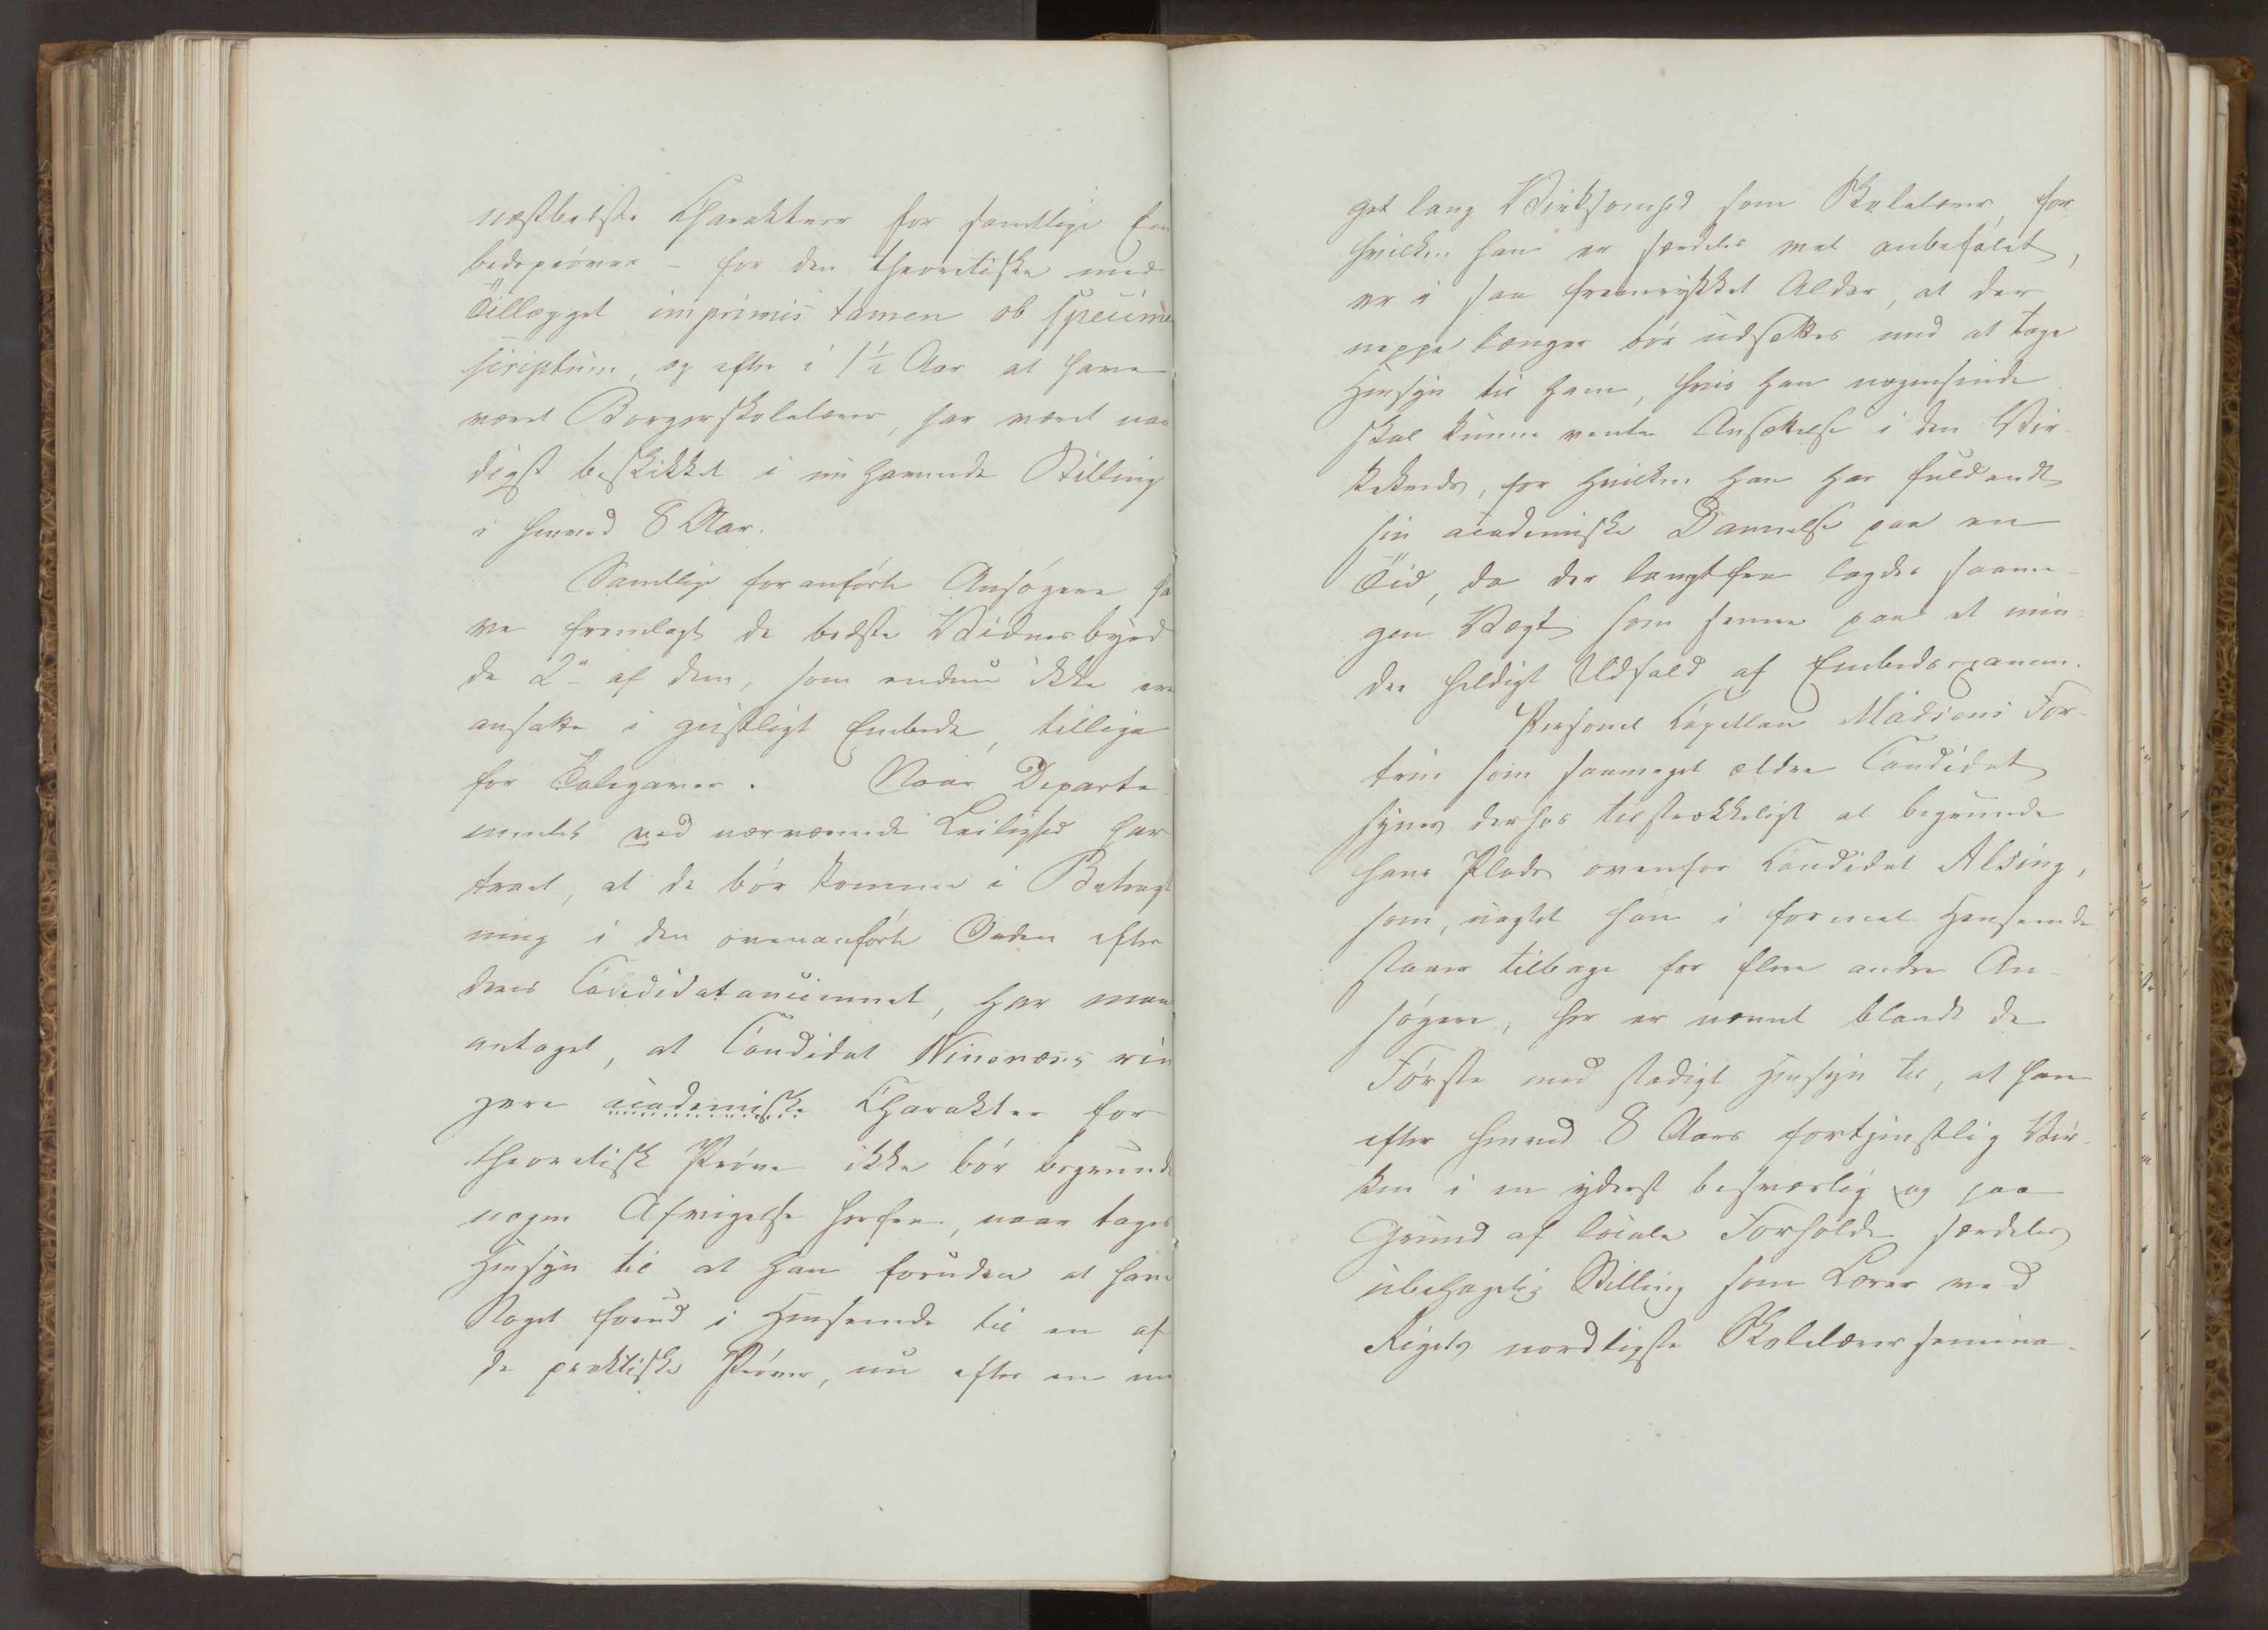 næstbedste Charakteer for samtlige Em
bedsprøver – for den theoretiske med
Tillægget imprimis tamen ob specimen
scriptum, og efter i 1½ Aar at have
været Borgerskolelærer, har været naa
digst beskikket i nu havende Stilling
i henved 8 Aar.
Samtlige foranførte Ansøgere ha
ve fremlagt de bedste Vidnesbyrd
de 2de af dem, som endnu ikke ere
ansatte i geistligt Embede, tillige
for Talegaver. Naar Departe
mentet ved nærværende Leilighed har
troet, at de bør komme i Betragt
ning i den ovenanførte Orden efter
deres Candidatancienitet, har man
antaget, at Candidat Ninsnæss rin
gere academiske Charakter for
theoretisk Prøve ikke bør begrunde
nogen Afvigelse herfra, naar tages
Hensyn til at han foruden at have
Noget forud i Henseende til en af
de praktiske Prøver, nu efter en me
get lang Virksomhed som Skolelærer, for
hvilken han er særdeles vel anbefalet,
er i saa fremrykket Alder, at der
neppe længer bør udsættes med at tage
Hensyn til ham, hvis han nogensinde
skal kunne vente Ansættelse i den Vir-
kekreds, for hvilken han har fuldendt
sin academiske Dannelse paa en
Tid, da der langtfra lagdes saame-
gen Vægt som senere paa et min-
dre heldigt Udfald af Embedsexamen.
Personel Capellan Madsens For-
trin som saameget ældre Candidat
synes derhos tilstrækkeligt at begrunde
hans Plads ovenfor Candidat Alsing,
som, uagtet han i formel Henseende
staaer tilbage for flere andre An-
søgere, her er nævnt blandt de
Første med stadigt Hensyn til, at han
efter henved 8 Aars fortjenstlig Vir-
ken i en yderst besværlig og paa
Grund af locale Forholde særdeles
ubehagelig Stilling som Lærer ved
Rigets nordligste Skolelærersemina-